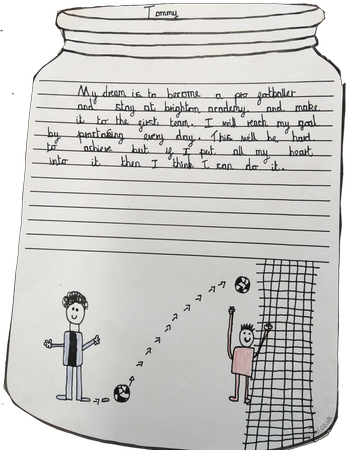 Tommy
My dream is to become a pro footballer
and stay at brighton academy and make
it to the first team. I will reach my goal
by practising every day. This will be hard
to achieve but if I put all my heart
into it then I think I can do it.